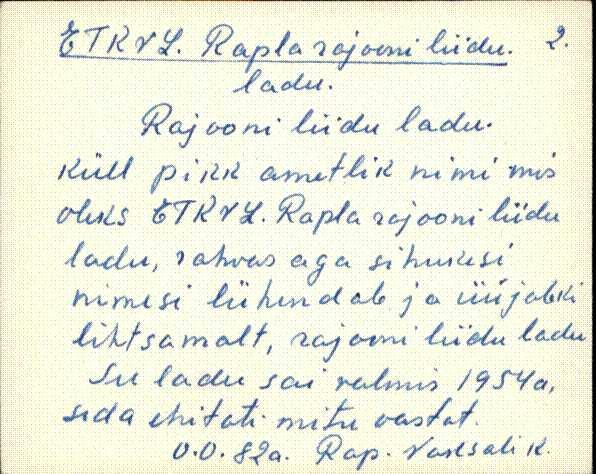 ETKVL. Rapla rajooni liidu. 2.
ladu.
Rajooni liidu ladu.
küll pikk ametlik nimi mis
oleks ETKVL. Rapla rajooni liidu
ladu, rahvas aga sihukesi
nimesi lühendab ja üüjabki
lihtsamalt, rajooni liidu ladu
Su ladu sai valmis 1954a,
seda ehitati mitu aastat.
V.O. 82a. Rap. k.